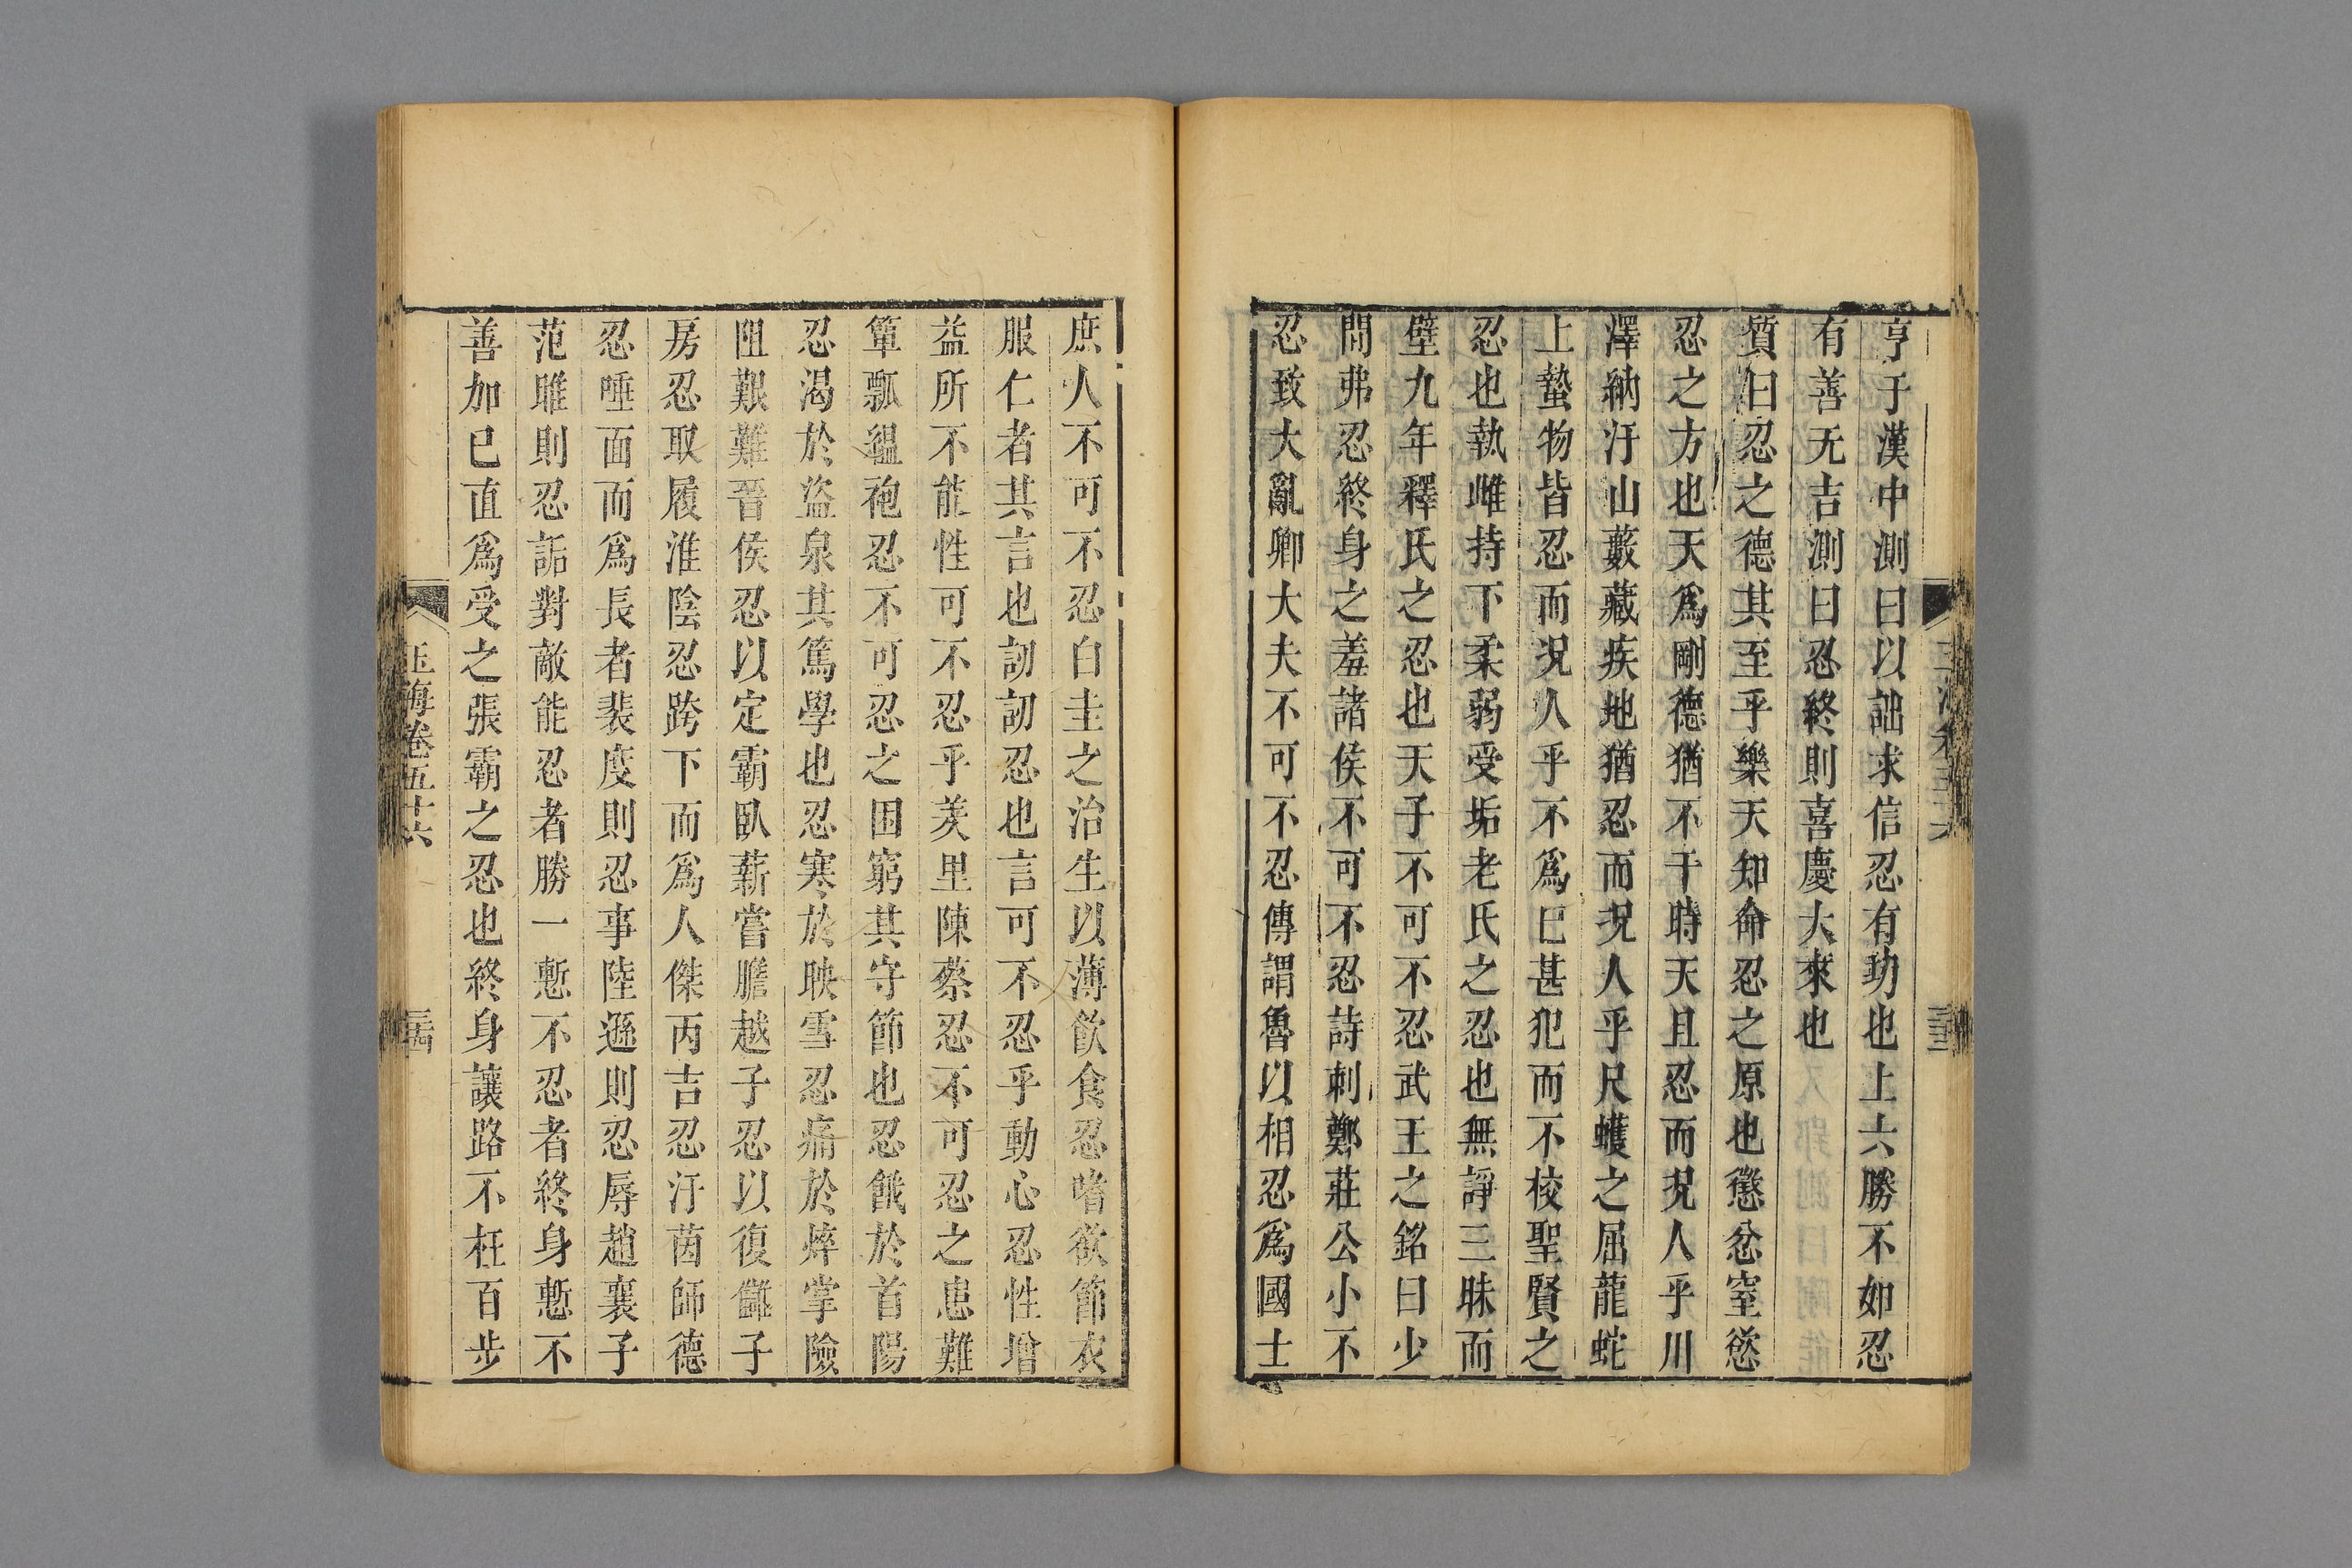 亨于漢中測曰以詘求信忍有功也上六勝不如忍
有善无吉測曰忍終則喜慶大來也
質曰忍之德其至乎樂天知命忍之原也懲忿窒慾
忍之方也天為剛德猶不干時天且忍而況人乎川
澤納汙山藪藏疾地猶忍而況人乎尺蠖之屈龍蛇
上蟄物皆忍而況人乎不為已甚犯而不校聖賢之
忍也執雌持下柔弱受垢老氏之忍也無諍三昧而
壁九年釋氏之忍也天子不可不忍武王之銘曰少
間弗忍終身之羞諸侯不可不忍詩刺鄭莊公小不
忍致大亂卿大夫不可不忍傳謂魯以相忍為國士
庶人不可不忍白圭之治生以薄飲食忍嗜欲節衣
服仁者其言也訒訒忍也言可不忍乎動心忍性增
益所不能性可不忍乎羑里陳蔡忍不可忍之患難
簞瓢縕袍忍不可忍之困窮其守節也忍餓於首陽
忍渴於盜泉其篤學也忍寒於映雪忍痛於焠掌險
阻艱難晉侯忍以定霸臥薪嘗膽越子忍以復讎子
房忍取履淮陰忍跨下而為人傑丙吉忍汙茵師德
忍唾面而為長者裴度則忍事陸遜則忍辱趙襄子
范雎則忍詬對敵能忍者勝一慙不忍者終身慙不
善加已直為受之張霸之忍也終身讓路不枉百步
玉海卷五十六
三十四